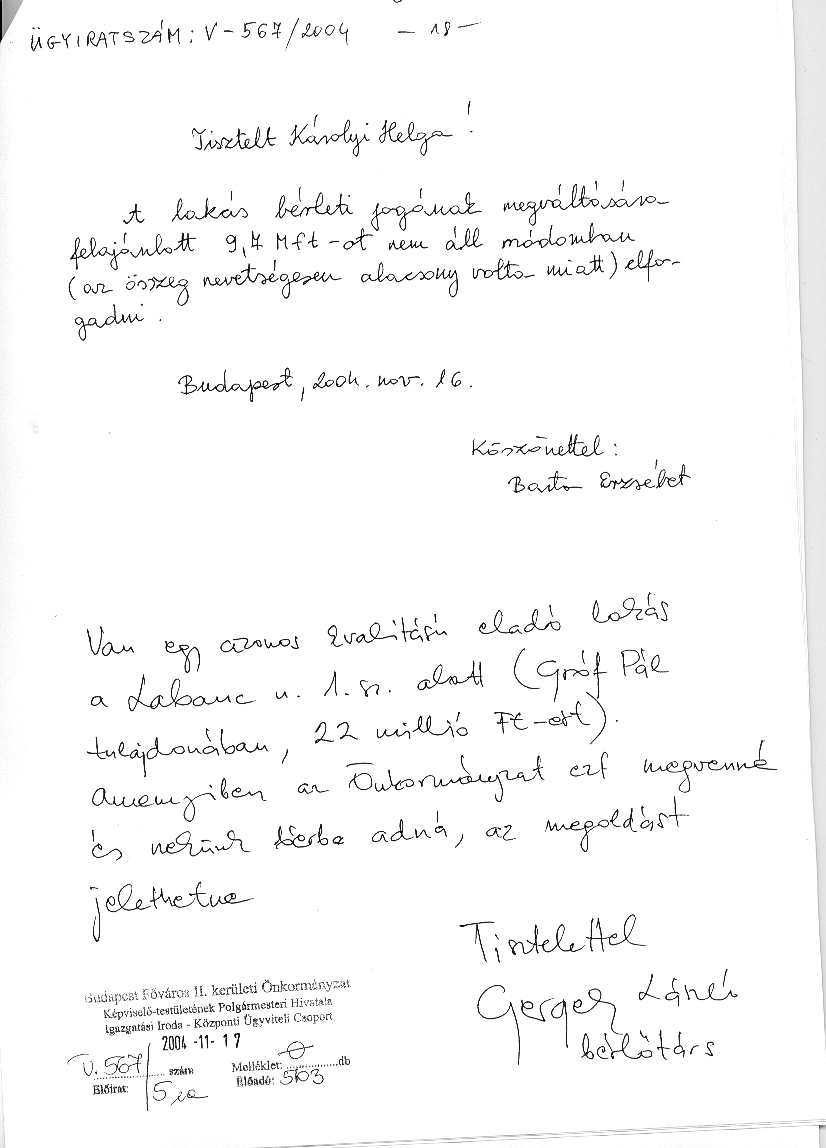 ÜGYIRATSZÁM: V-567/2004 — 18 —
Tisztelt Károlyi Helga!
A lakás bérleti jogának megváltására
felajánlott 9,7 Mft-ot nem áll módomban
(az összeg nevetségesen alacsony volta miatt) elfo-
gadni.
Budapest, 2004. nov. 16.
Köszönettel:
Erzsébet
Van egy azonos kvalitású eladó lakás
a Labanc u. 1. sz. alatt (Gróf Pál
tulajdonában, 22 millió Ft-ért).
Amennyiben az Önkormányzat ezt megvenné
és nekünk bérbe adná, az megoldást
jelethetne
Tisztelettel
bérlőtárs
Budapest Főváros II. kerületi Önkormányzat
Képviselő-testületének Polgármesteri Hivatala
Igazgatási Iroda - Központi Ügyviteli Csoport
2004 -11- 17
V. 567 szám Melléklet: db
Előirat: Előadó: 5103